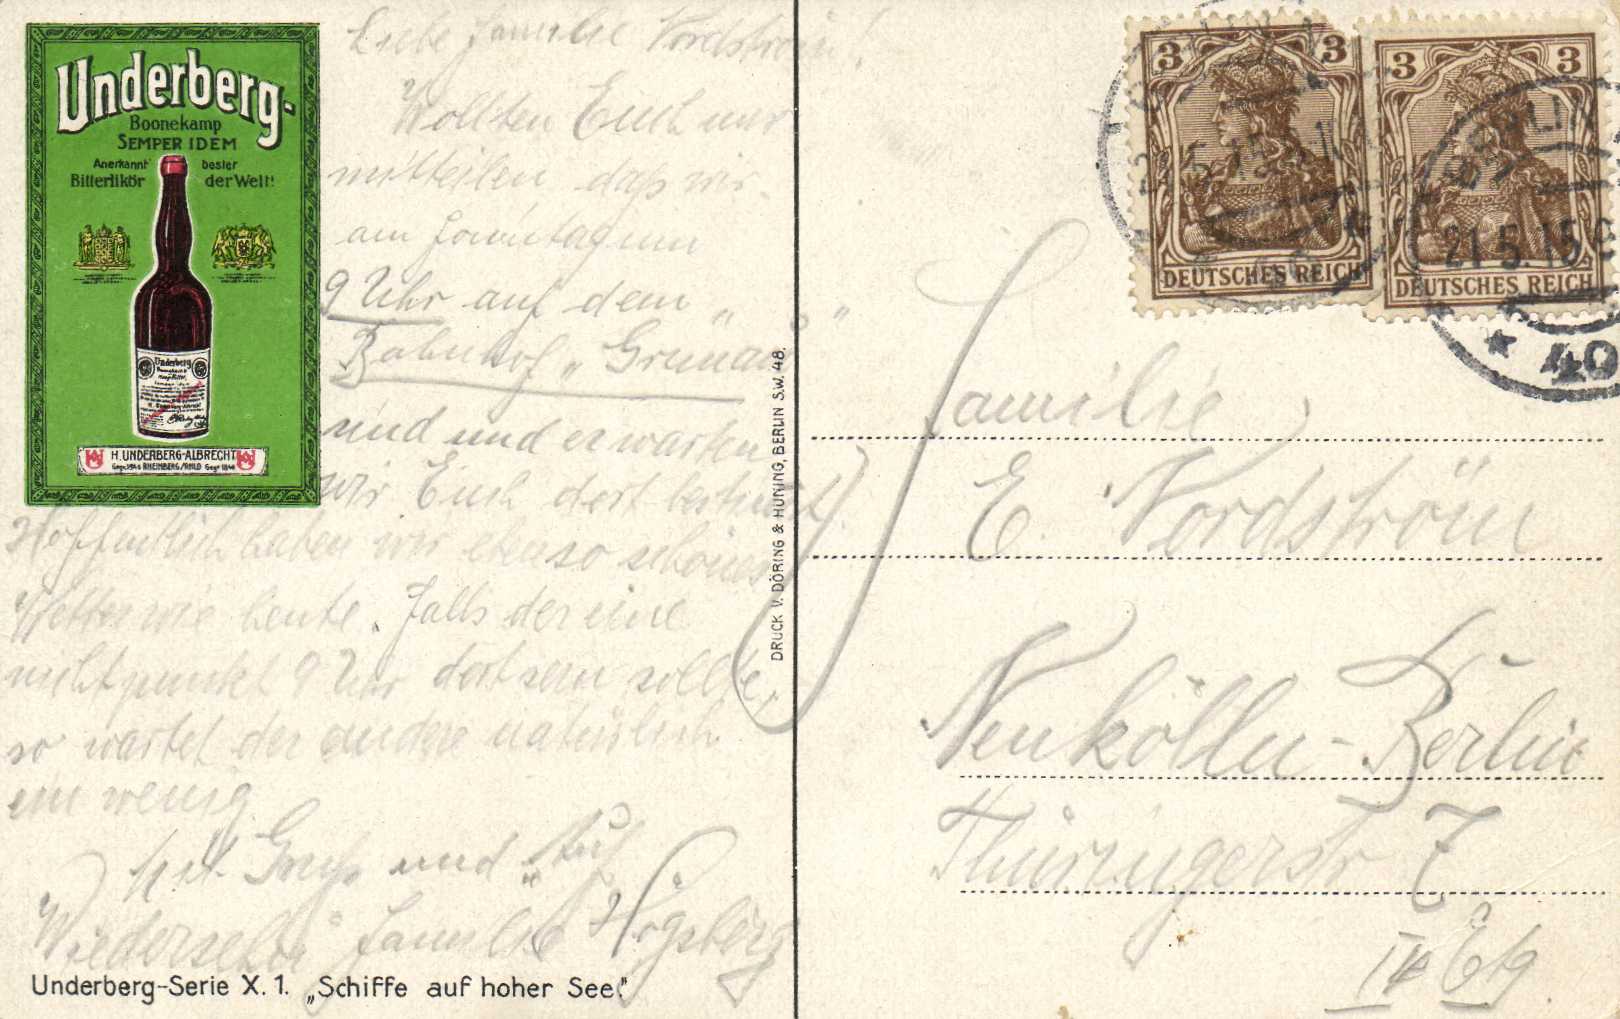 Underberg-
Boonekamp
SEMPER IDEM
Anerkannt bester
Bitterlikör der Welt!
Underberg
H. UNDERBERG-ALBRECHT
Gegr. 1846 RHEINBERG/RHLD Gegr. 1846
Liebe Familie Nordström!
Wollten Euch nur
mitteilen, daß wir
am Sonntag um
9 Uhr auf dem
Bahnhof „Grünau"
sind und erwarten
wir Euch dort bestimmt.
Hoffentlich haben wir ebenso schönes
Wetter wie heute. Falls der eine
nicht punkt 9 Uhr dort sein sollte,
so wartet der andere natürlich
ein wenig
Mit Gruß und „Auf
Wiedersehn" Familie Högsberg
Underberg-Serie X. 1. „Schiffe auf hoher See."
DRUCK V. DÖRING & HÜNING, BERLIN S.W. 48.
3 3
DEUTSCHES REICH
3 3
DEUTSCHES REICH
BERLIN
21.5.15
* 40
Familie
E. Nordström
Neukölln-Berlin
Thüringerstr 7
IV Etg.